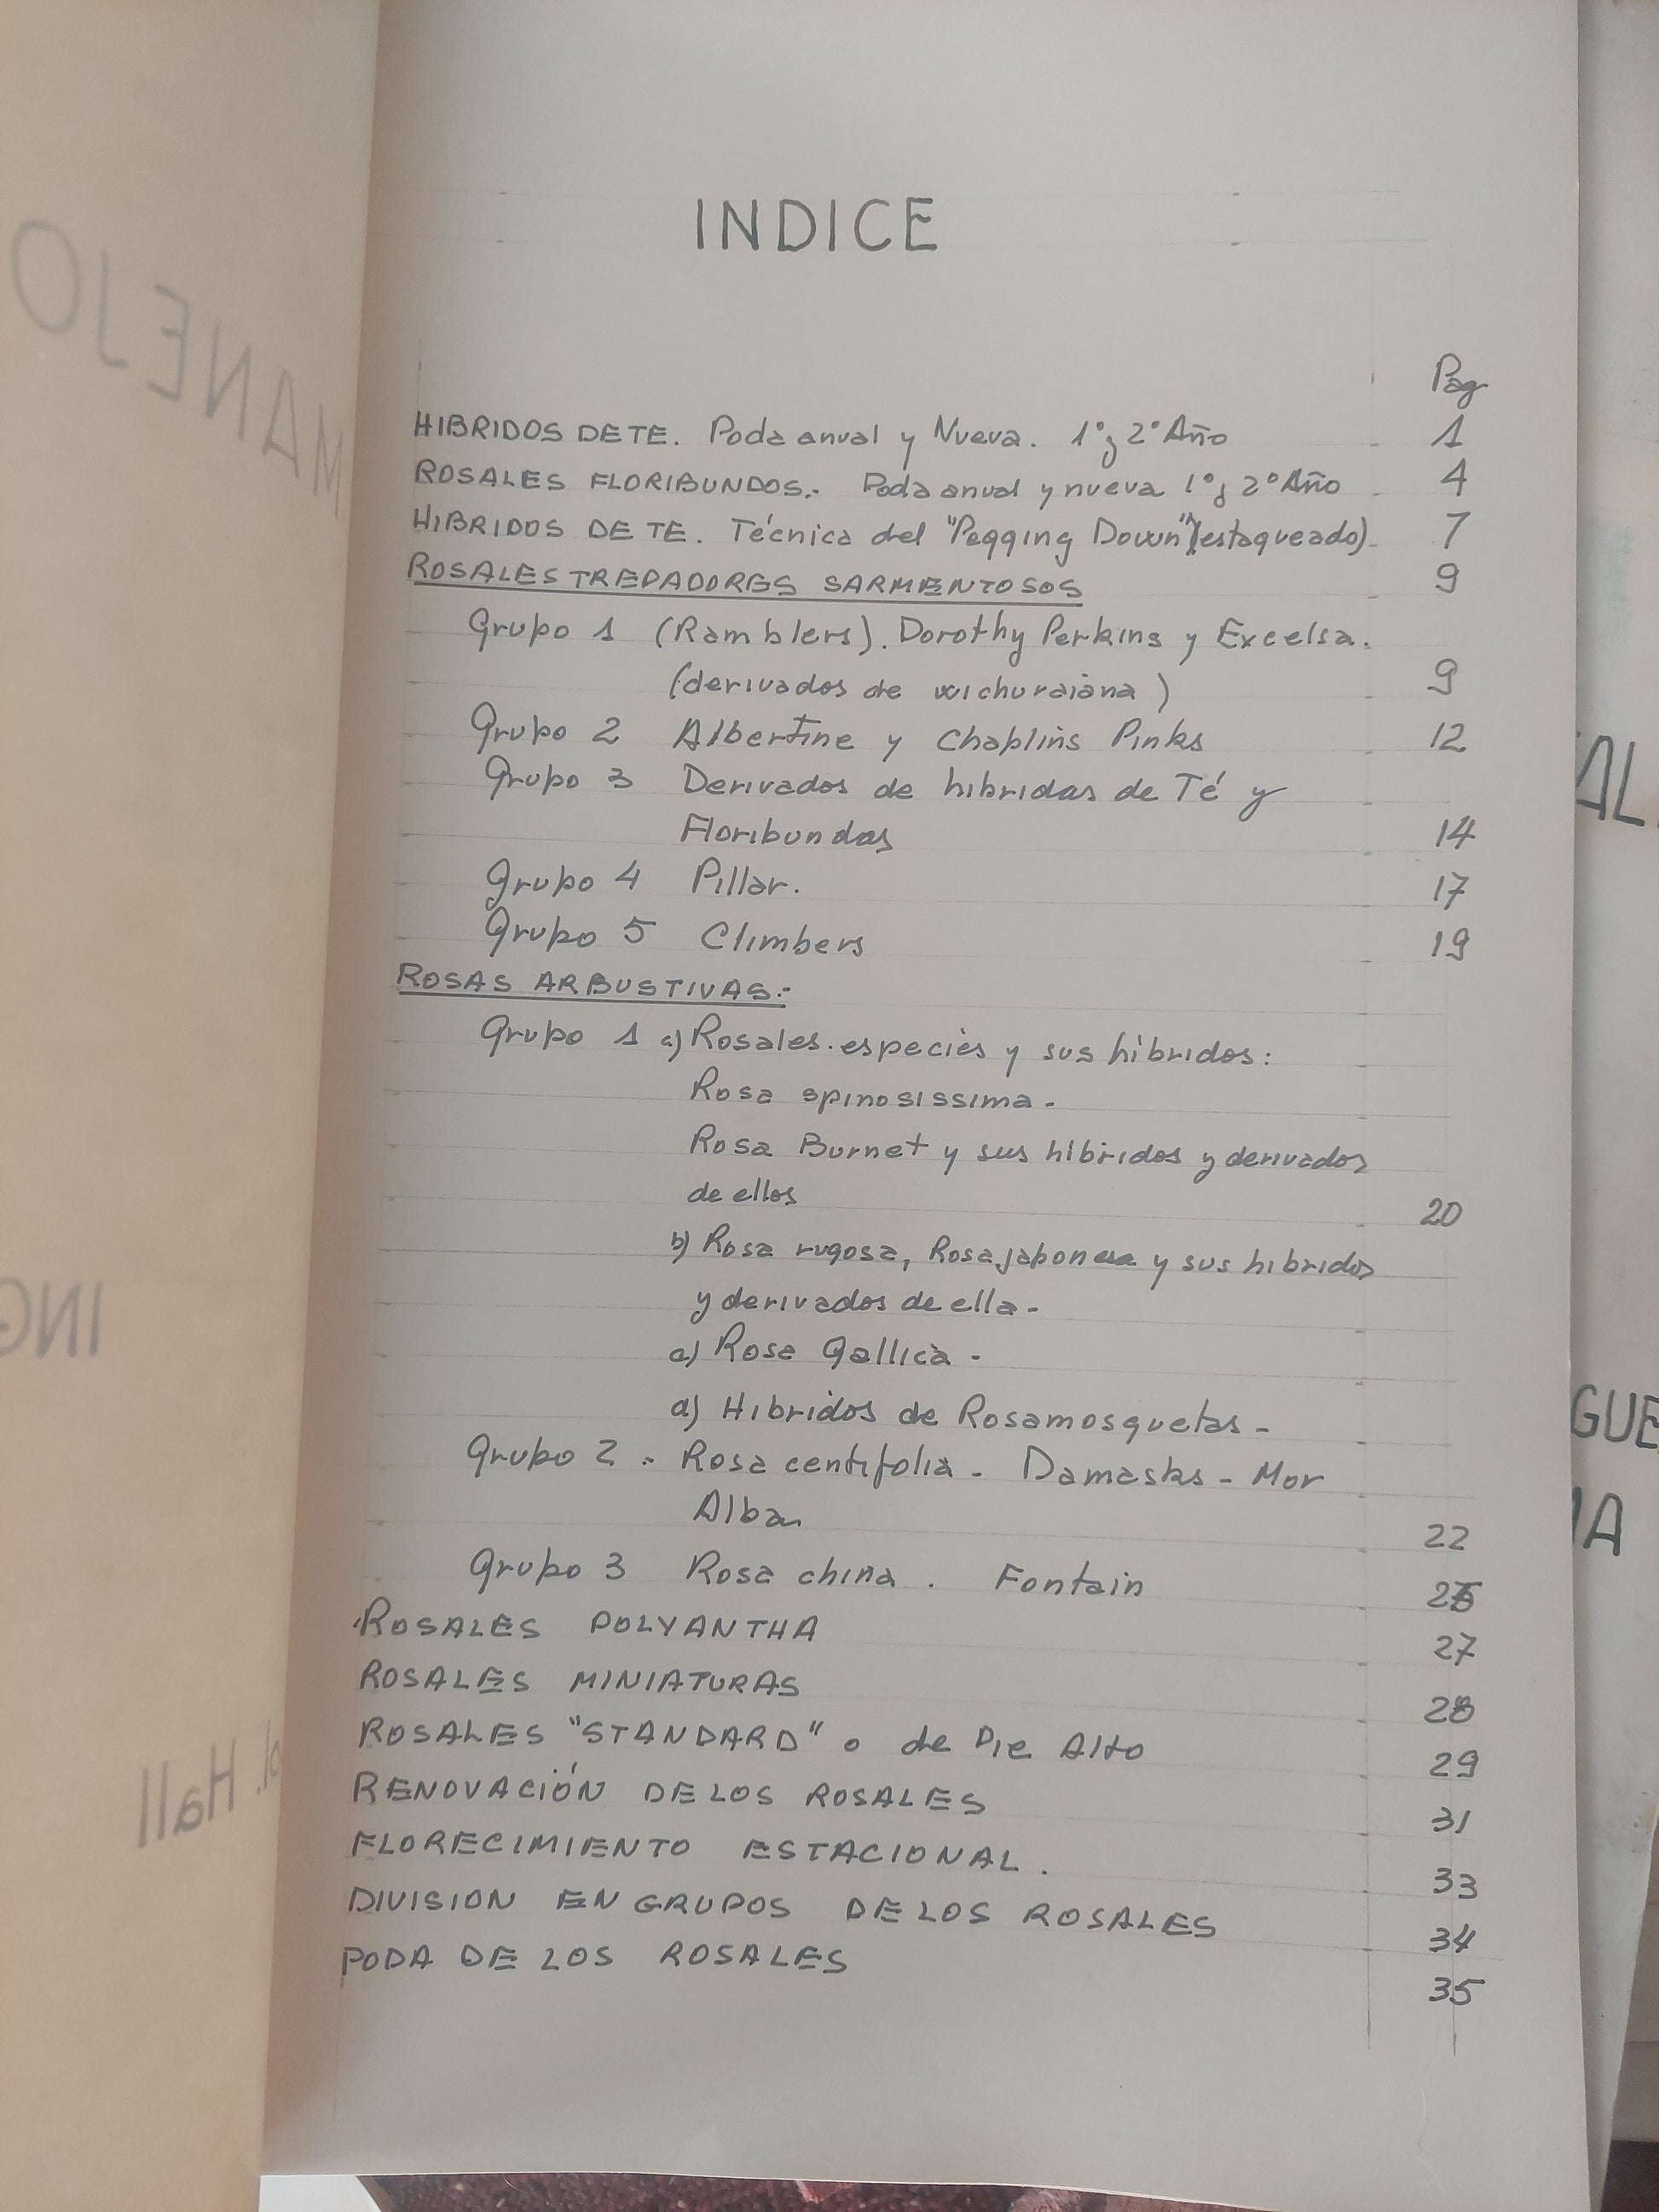 INDICE
Pag
HIBRIDOS DE TE. Poda anual y Nueva. 1° y 2° Año - 1
ROSALES FLORIBUNDOS.- Poda anual y nueva 1° y 2° Año - 4
HIBRIDOS DE TE. Técnica del "Pegging Down" (estaqueado) - 7
ROSALES TREPADORES SARMENTOSOS - 9
Grupo 1 (Ramblers). Dorothy Perkins y Excelsa.
(derivados de wichuraiana) - 9
Grupo 2 Albertine y Chaplins Pinks - 12
Grupo 3 Derivados de hibridas de Té y
Floribundas - 14
Grupo 4 Pillar. - 17
Grupo 5 Climbers - 19
ROSAS ARBUSTIVAS:-
Grupo 1 a) Rosales especies y sus hibridos:
Rosa spinosissima -
Rosa Burnet y sus hibridos y derivados
de ellos 20
b) Rosa rugosa, Rosa japonesa y sus hibridos
y derivados de ella -
c) Rosa Gallica -
d) Hibridos de Rosamosquetas -
Grupo 2 - Rosa centifolia - Damasks - Mor
Alba 22
Grupo 3 Rosa china . Fontain
ROSALES POLYANTHA 27
ROSALES MINIATURAS 28
ROSALES "STANDARD" o de Pie Alto 29
RENOVACIÓN DE LOS ROSALES 31
FLORECIMIENTO ESTACIONAL. 33
DIVISION EN GRUPOS DE LOS ROSALES 34
PODA DE LOS ROSALES 35
MANEJO
ING
Hall
AL
GUE